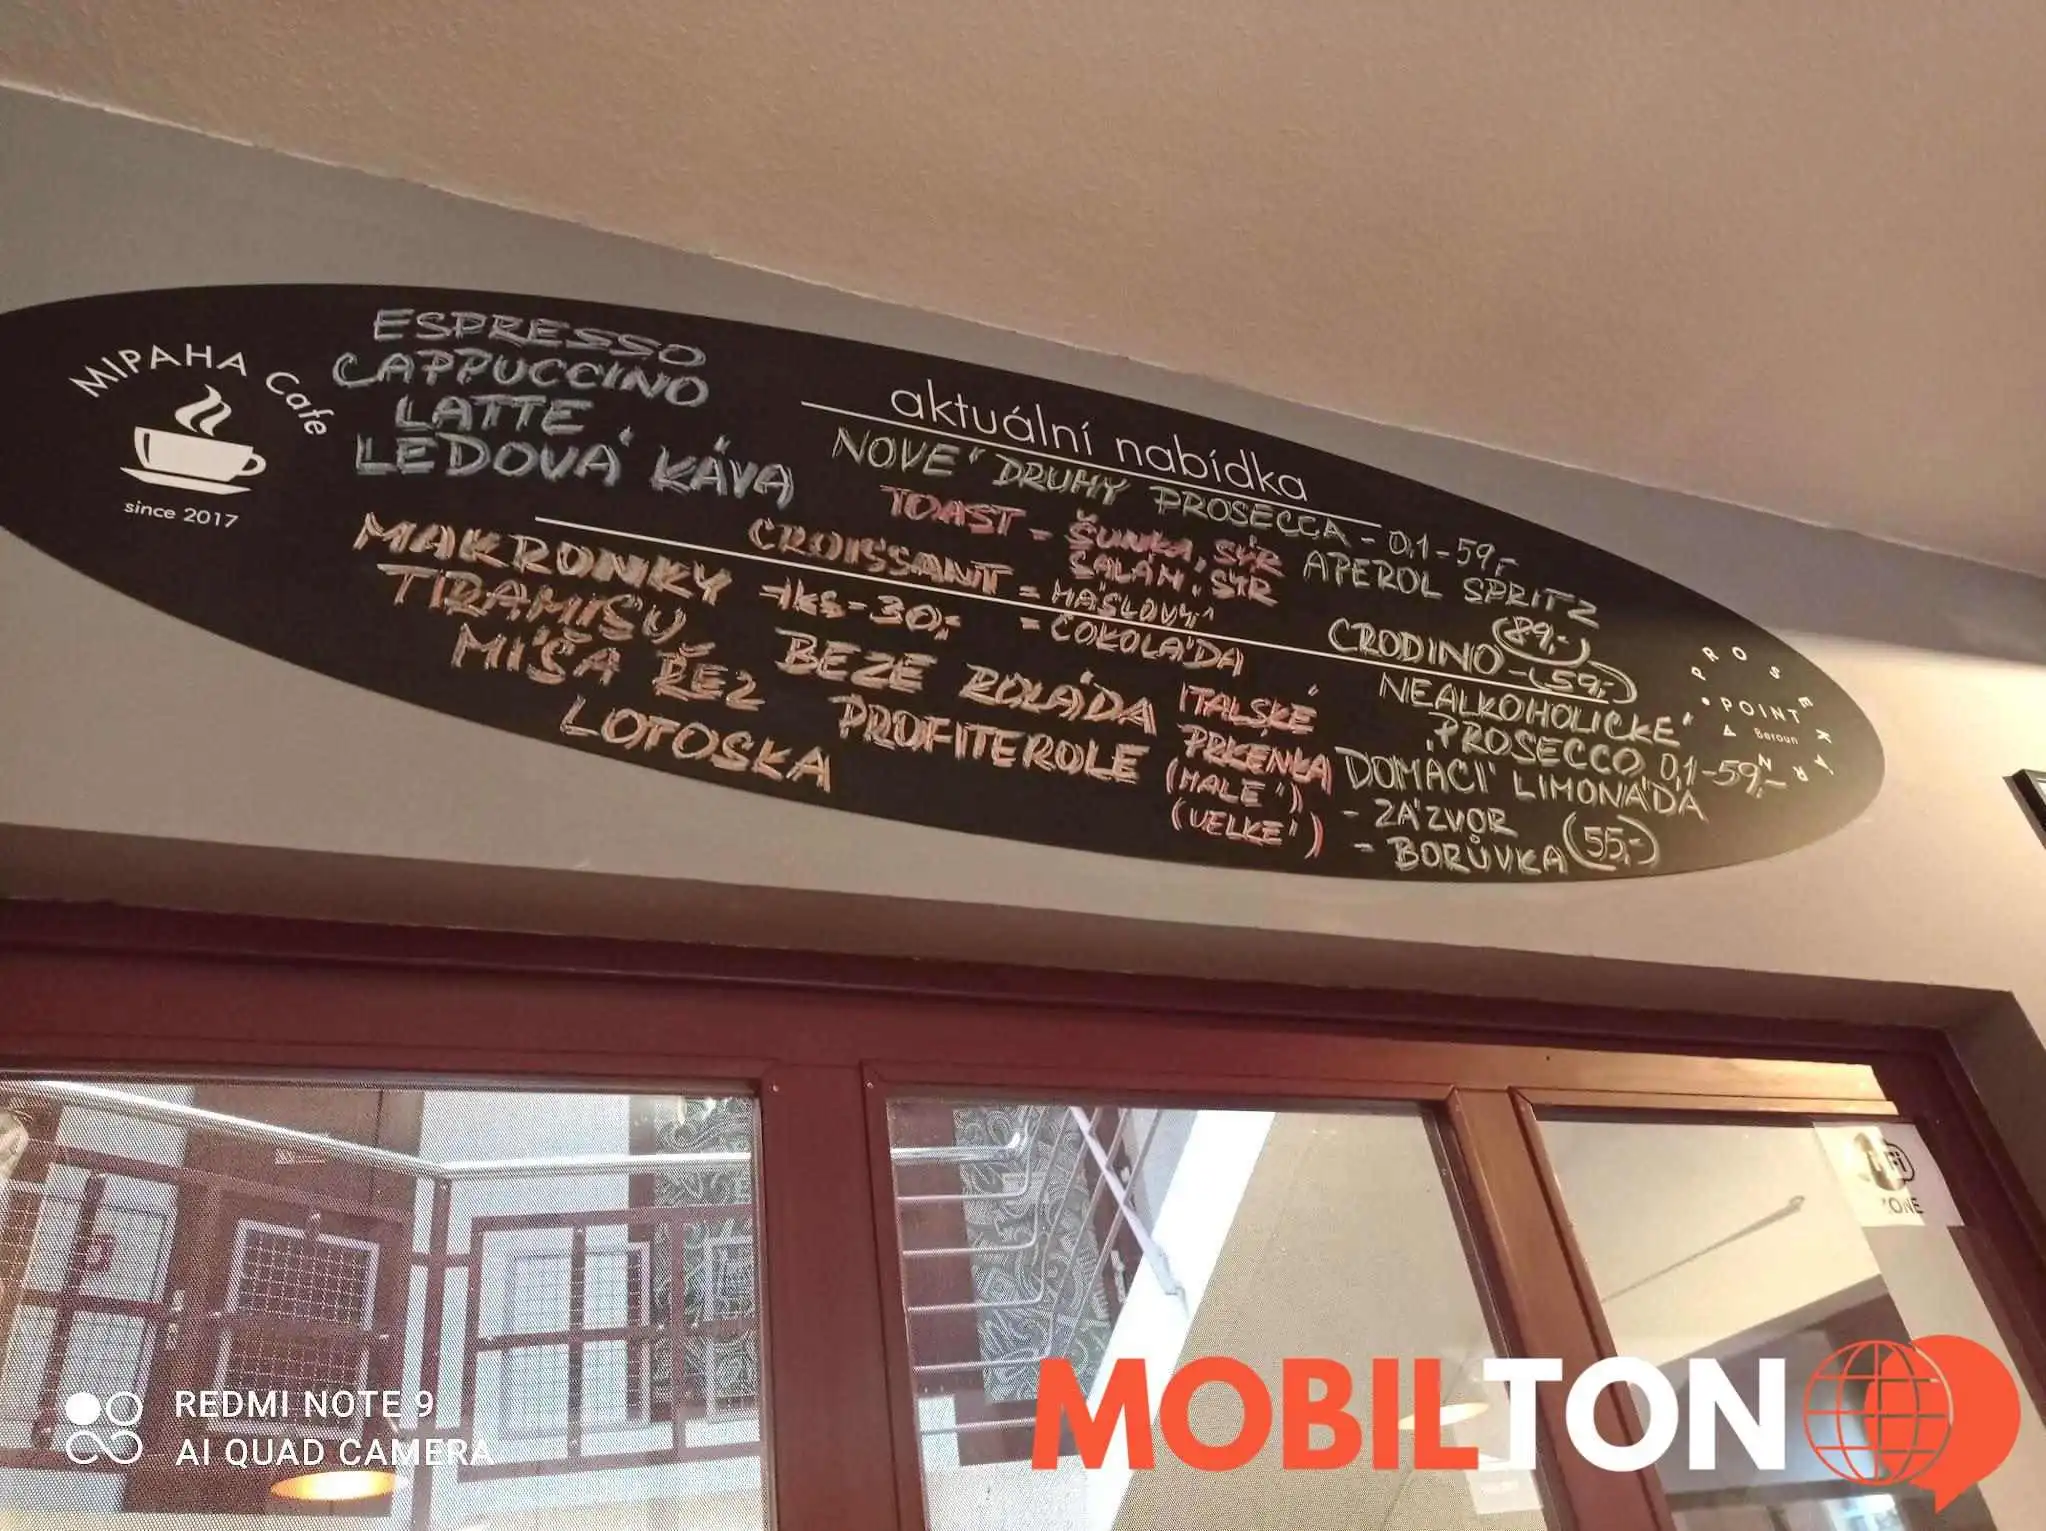 MIPAHA Cafe
since 2017
ESPRESSO
CAPPUCCINO
LATTE
LEDOVÁ KÁVA
aktuální nabídka
NOVÉ DRUHY PROSECCA - 0,1 - 59,-
TOAST - ŠUNKA, SÝR
SALÁM, SÝR
APEROL SPRITZ
(89,-)
CROISSANT = MÁSLOVÝ
= ČOKOLÁDA
CRODINO - (59,-)
MAKRONKY - 1KS - 30,-
TIRAMISU
MÍŠA ŘEZ
LOTOSKA
BEZE ROLÁDA
PROFITEROLE
ITALSKÉ
PRKÉNKA
(MALÉ)
(VELKÉ)
NEALKOHOLICKÉ
PROSECCO 0,1 - 59,-
DOMÁCÍ LIMONÁDA
- ZÁZVOR
- BORŮVKA (55,-)
PROSEKÁRNA
POINT
Beroun
WiFi
ZONE
REDMI NOTE 9
AI QUAD CAMERA
MOBILTON